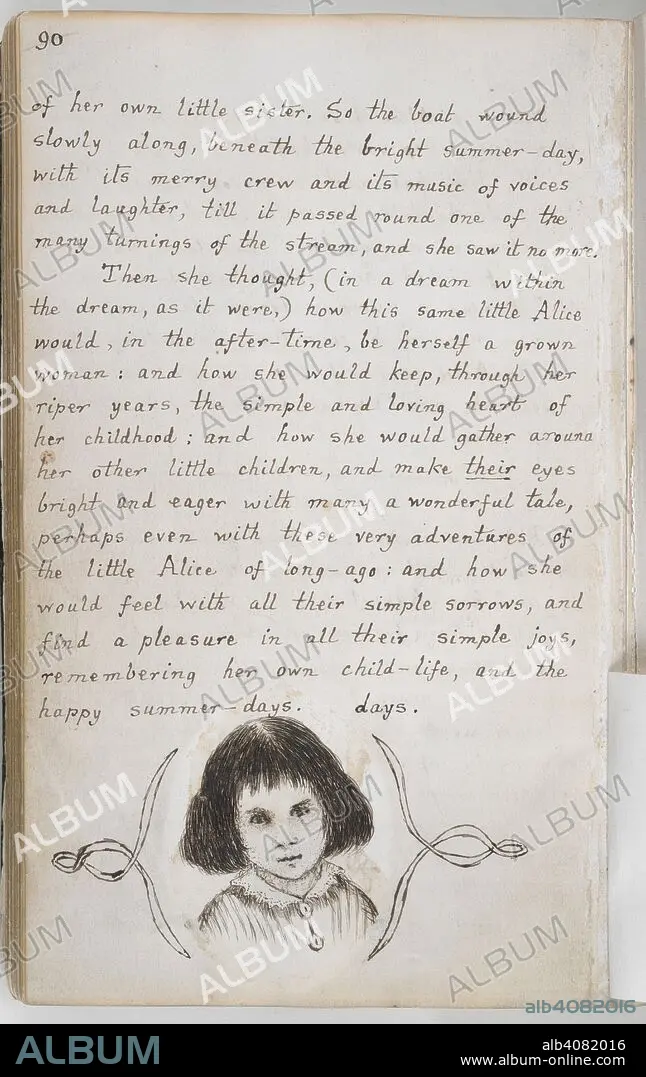 90
of her own little sister. So the boat wound
slowly along, beneath the bright summer-day,
with its merry crew and its music of voices
and laughter, till it passed round one of the
many turnings of the stream, and she saw it no more.
Then she thought, (in a dream within
the dream, as it were,) how this same little Alice
would, in the after-time, be herself a grown
woman: and how she would keep, through her
riper years, the simple and loving heart of
her childhood: and how she would gather around
her other little children, and make their eyes
bright and eager with many a wonderful tale,
perhaps even with these very adventures of
the little Alice of long-ago: and how she
would feel with all their simple sorrows, and
find a pleasure in all their simple joys,
remembering her own child-life, and the
happy summer-days. days.
alb4082016
ALBUM
alb4082016
www.album-online.com